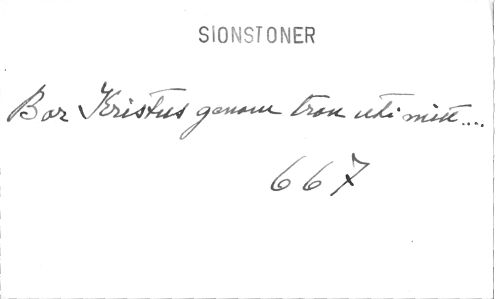 SIONSTONER
Bor Kristus genom tron uti mitt....
667